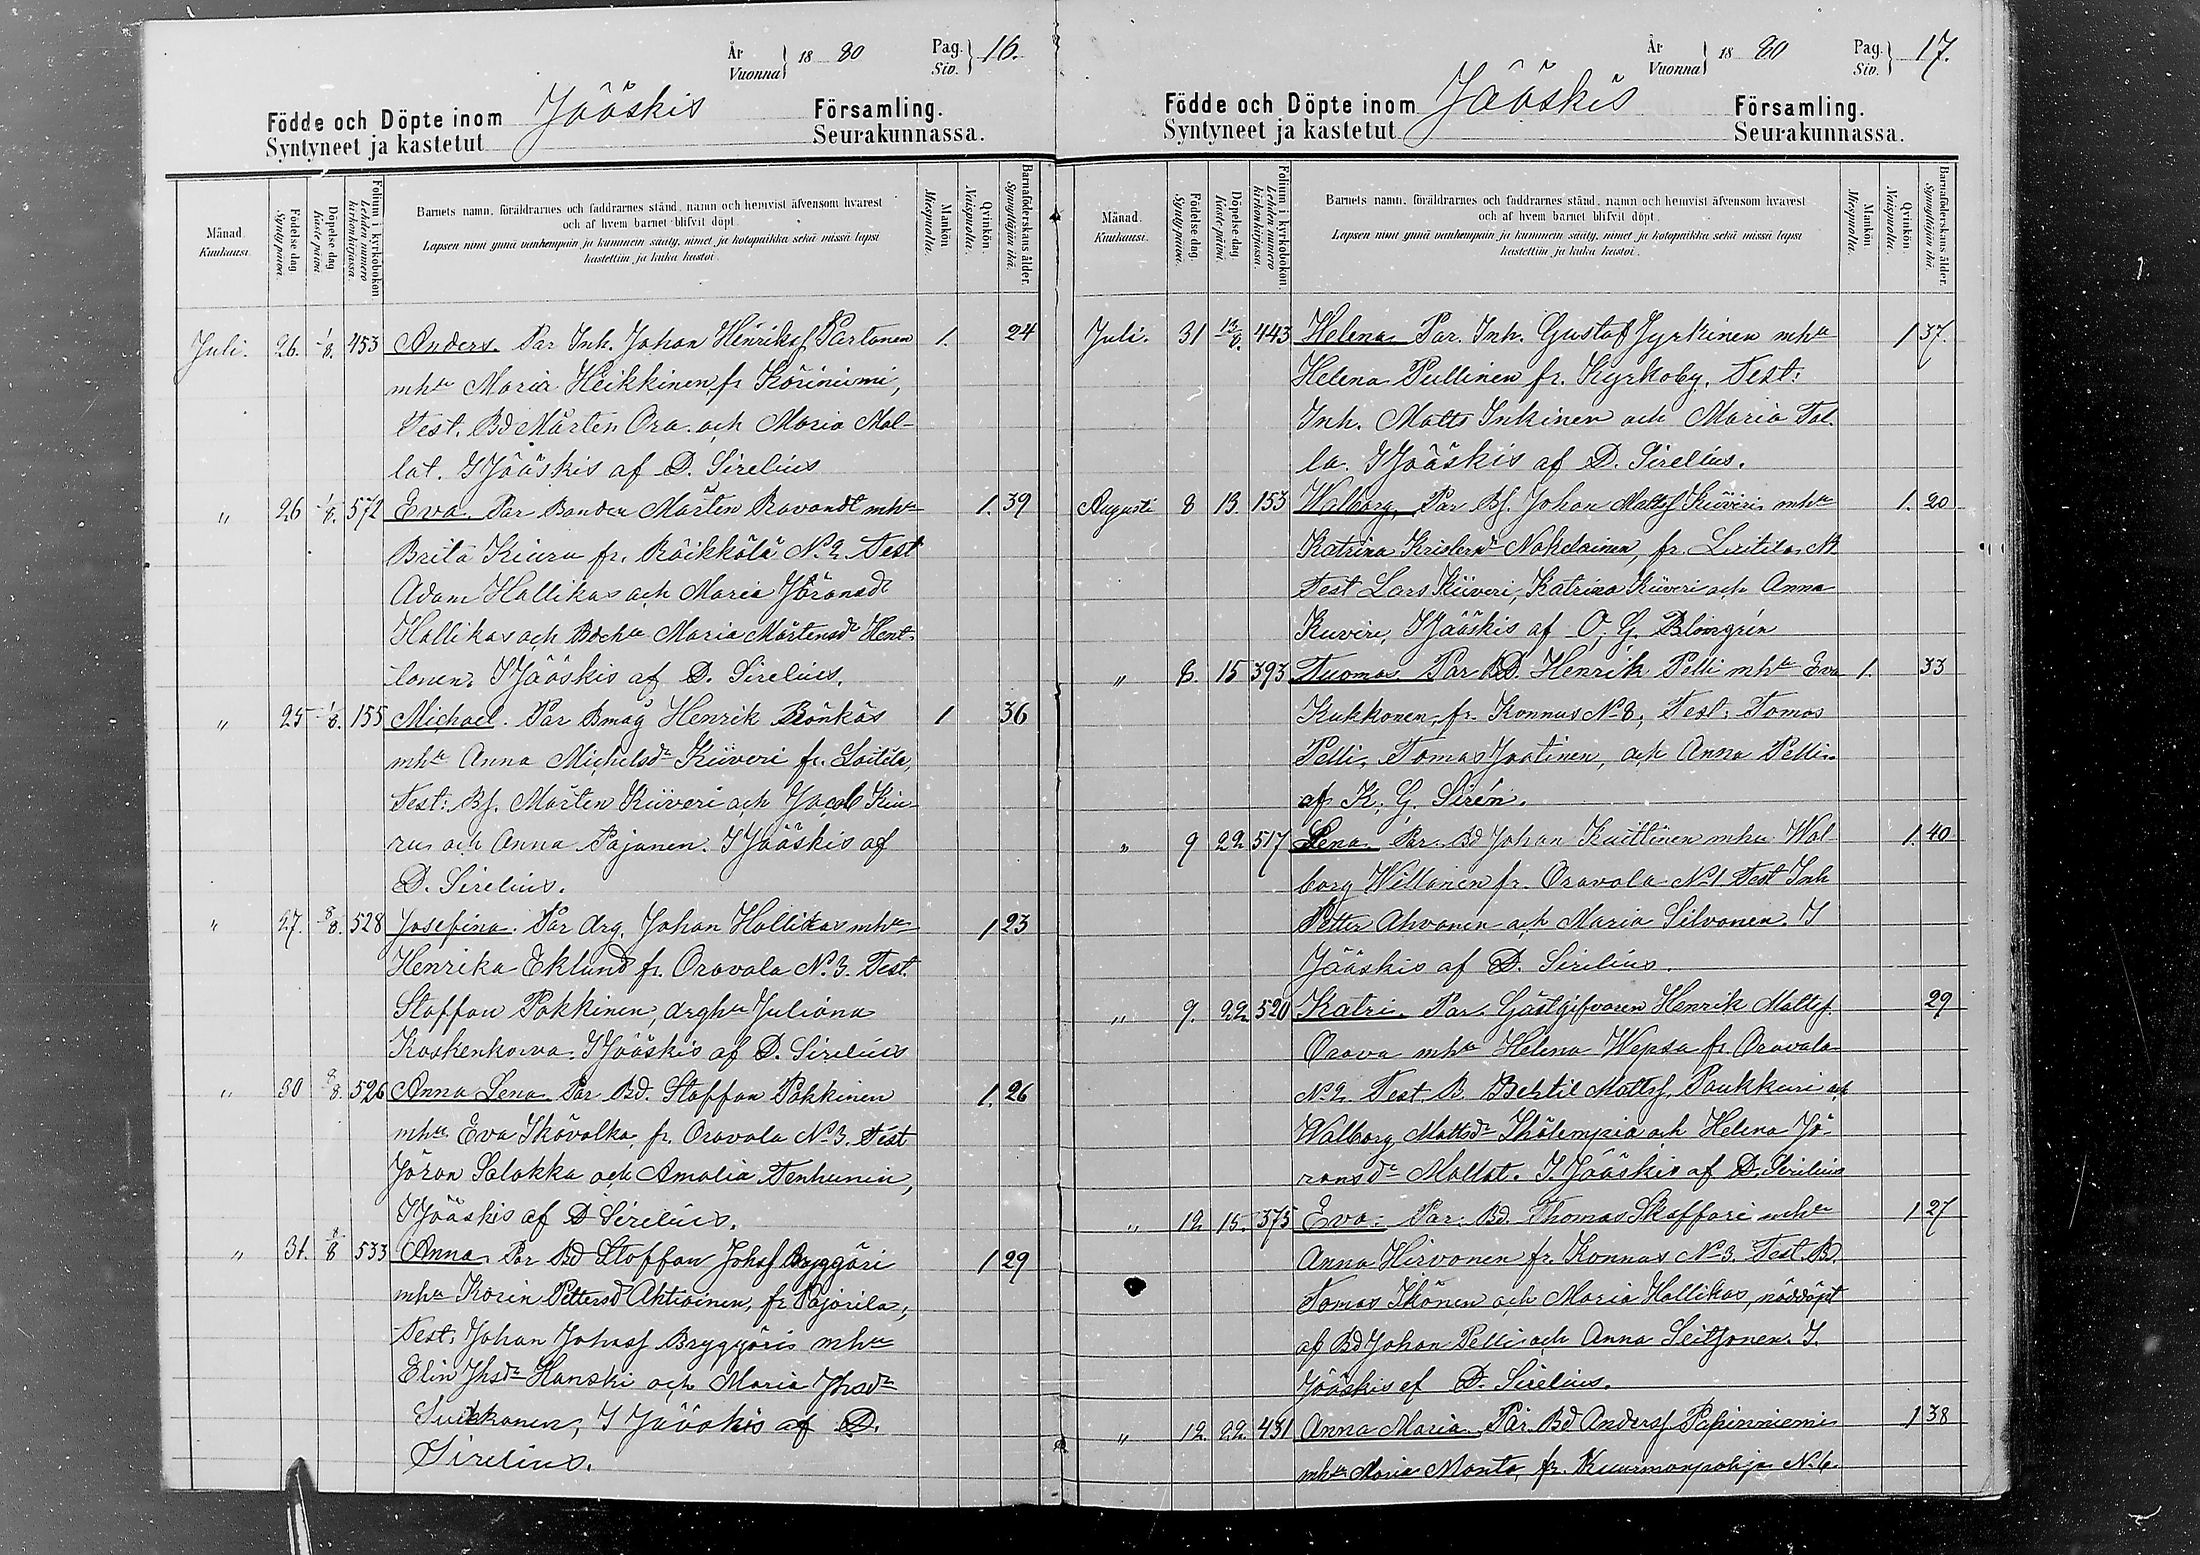 År Vuonna 1880 Pag. Siv. 16.
Födde och Döpte inom Jääskis Församling.
Syntyneet ja kastetut Seurakunnassa.
Månad. Kuukausi.
Födelse dag. Synty päivä.
Döpelse dag. Kaste päivä.
Folium i kyrkobokon. Lehden numero kirkonkirjassa.
Barnets namn, föräldrarnes och faddrarnes stånd, namn och hemvist äfvensom hvarest
och af hvem barnet blifvit döpt.
Lapsen nimi ynnä vanhempain ja kummein sääty, nimet ja kotopaikka sekä missä lapsi
kastettiin ja kuka kastoi.
Mankön. Miespuolta.
Qvinkön. Naispuolta.
Barnaföderskans ålder. Synnyttäjän ikä.
Juli. 26. 1/8. 453 Anders. Par Inh. Johan Henrikss Partanen 1. 24
mhu Maria Heikkinen, fr Köriniemi,
Test. Bd Mårten Ora och Maria Mal-
lat. I Jääskis af D. Sirelius
" 26 1/8. 572 Eva. Par Bonden Mårten Ravandt mhu 1. 39
Brita Kiuru fr. Räikkölä No 2. Test
Adam Hallikas och Maria Jöransdr
Hallikas och Bdehu Maria Mårtensdr Hent-
tonen. I Jääskis af D. Sirelius.
" 25 1/8. 155 Michael. Par Bmåg Henrik Rönkäs 1 36
mhu Anna Michelsdr Kiiveri fr. Laitila,
Test: Bs. Mårten Kiiveri och Jacob Kiu-
ru och Anna Pajanen. I Jääskis af
D. Sirelius.
" 27. 8/8. 528 Josefina. Par drg. Johan Hallikas mhu 1 23
Henrika Eklund fr. Oravala No. 3. Test.
Staffan Pakkinen, drghu Juliana
Koskenkorva. I Jääskis af D. Sirelius
" 30 8/8. 526 Anna Lena Par Bd. Staffan Pakkinen 1. 26
mhu Eva Ikävalko fr. Oravala No 3. Test
Jöran Salakka och Amalia Tenhunin,
I Jääskis af D Sirelius.
" 31. 8/8 533 Anna. Par Bd Staffan Johss Bryggäri 1 29
mhu Karin Pettersd Ahtiainen, fr Pajarila,
Test: Johan Johass Bryggäri mhu
Elin Jhsdr Hanski och Maria Jhsdr
Suikkanen, I Jääskis af D.
Sirelius.
År Vuonna 1880 Pag. Siv. 17.
Födde och Döpte inom Jääskis Församling.
Syntyneet ja kastetut Seurakunnassa.
Månad. Kuukausi.
Födelse dag. Synty päivä.
Döpelse dag. Kaste päivä.
Folium i kyrkobokon. Lehden numero kirkonkirjassa.
Barnets namn, föräldrarnes och faddrarnes stånd, namn och hemvist äfvensom hvarest
och af hvem barnet blifvit döpt.
Lapsen nimi ynnä vanhempain ja kummein sääty, nimet ja kotopaikka sekä missä lapsi
kastettiin ja kuka kastoi.
Mankön. Miespuolta.
Qvinkön. Naispuolta.
Barnaföderskans ålder. Synnyttäjän ikä.
Juli. 31 13/8. 443 Helena Par. Inh. Gustaf Jyrkinen mhu 1 37.
Helena Pullinen fr. Kyrkoby. Test:
Inh. Matts Inkinen och Maria Tal-
la. I Jääskis af D. Sirelius.
Augusti 8 13. 153 Walborg. Par Bs. Johan Mattss Kiiveri mhu 1. 20
Katrina Nokelainen, fr. Laitila
Test Lars Kiiveri, Katrina Kiiveri och Anna
Kuviri, I Jääskis af O. G. Blomgrén
" 8. 15 393 Tuomas Par BD. Henrik Pelli mhu Eva 1. 33
Kukkonen, fr. Konnus No 8, Test: Tomas
Pelli, Tomas Jaatinen, och Anna Pelli.
af K. G. Sirén.
" 9 22 517 Lena. Par. Bd Johan Kaittinen mhu Wal- 1. 40
borg Willanen fr. Oravala No 1 Test Inh
Petter Ahvonen och Maria Silvonen. I
Jääskis af D. Sirilius.
" 9. 22 520 Katri. Par. Gästgifvaren Henrik Mattss 29
Orava mhu Helena Wepsä fr. Oravala
No. 2 Test B. Bertil Mattss Paukkuri och
Walborg Mattsdr Ihälempiä och Helena Jö-
ransdr Mallat. I Jääskis af D. Sirilius
" 12 15. 375 Eva. Par. Bd. Thomas Skaffari mhu 1 27
Anna Hirvonen fr. Konnus No 3. Test. B.
Tomas Ikönen och Maria Hallikas, nöddöpt
af Bd Johan Pelli och Anna Seitsonen. I.
Jääskis af D. Sirelius.
" 12. 22. 431 Anna Maria. Par. Bd Anderss Papinniemi 1 38
mhu Maria Manto, fr. Kuurmanpohja No 6.